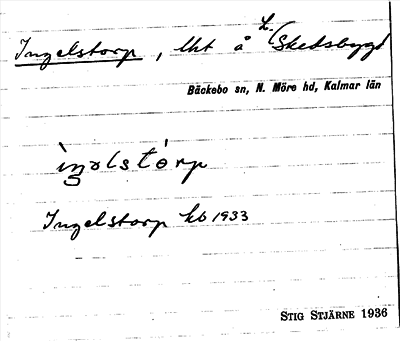 Ingelstorp, lht å L. Skedsbygd
Bäckebo sn, N. Möre hd, Kalmar län
ìŋəlstórp
Ingelstorp kb 1933
STIG STJÄRNE 1936